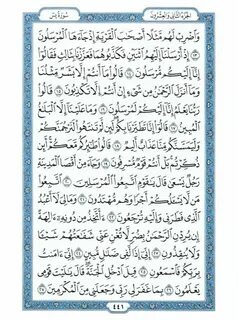 الجزء الثاني والعشرون
سورة يس
وَٱضْرِبْ لَهُم مَّثَلًا أَصْحَٰبَ ٱلْقَرْيَةِ إِذْ جَآءَهَا ٱلْمُرْسَلُونَ
١٣ إِذْ أَرْسَلْنَآ إِلَيْهِمُ ٱثْنَيْنِ فَكَذَّبُوهُمَا فَعَزَّزْنَا بِثَالِثٍ فَقَالُوٓا۟
إِنَّآ إِلَيْكُم مُّرْسَلُونَ ١٤ قَالُوا۟ مَآ أَنتُمْ إِلَّا بَشَرٌ مِّثْلُنَا
وَمَآ أَنزَلَ ٱلرَّحْمَٰنُ مِن شَىْءٍ إِنْ أَنتُمْ إِلَّا تَكْذِبُونَ ١٥ قَالُوا۟
رَبُّنَا يَعْلَمُ إِنَّآ إِلَيْكُمْ لَمُرْسَلُونَ ١٦ وَمَا عَلَيْنَآ إِلَّا ٱلْبَلَٰغُ
ٱلْمُبِينُ ١٧ قَالُوٓا۟ إِنَّا تَطَيَّرْنَا بِكُمْ لَئِن لَّمْ تَنتَهُوا۟ لَنَرْجُمَنَّكُمْ
وَلَيَمَسَّنَّكُم مِّنَّا عَذَابٌ أَلِيمٌ ١٨ قَالُوا۟ طَٰٓئِرُكُم مَّعَكُمْ أَئِن
ذُكِّرْتُم بَلْ أَنتُمْ قَوْمٌ مُّسْرِفُونَ ١٩ وَجَآءَ مِنْ أَقْصَا ٱلْمَدِينَةِ
رَجُلٌ يَسْعَىٰ قَالَ يَٰقَوْمِ ٱتَّبِعُوا۟ ٱلْمُرْسَلِينَ ٢٠ ٱتَّبِعُوا۟
مَن لَّا يَسْـَٔلُكُمْ أَجْرًا وَهُم مُّهْتَدُونَ ٢١ وَمَا لِىَ لَآ أَعْبُدُ
ٱلَّذِى فَطَرَنِى وَإِلَيْهِ تُرْجَعُونَ ٢٢ ءَأَتَّخِذُ مِن دُونِهِۦٓ ءَالِهَةً
إِن يُرِدْنِ ٱلرَّحْمَٰنُ بِضُرٍّ لَّا تُغْنِ عَنِّى شَفَٰعَتُهُمْ شَيْـًٔا
وَلَا يُنقِذُونِ ٢٣ إِنِّىٓ إِذًا لَّفِى ضَلَٰلٍ مُّبِينٍ ٢٤ إِنِّىٓ ءَامَنتُ
بِرَبِّكُمْ فَٱسْمَعُونِ ٢٥ قِيلَ ٱدْخُلِ ٱلْجَنَّةَ قَالَ يَٰلَيْتَ قَوْمِى
يَعْلَمُونَ ٢٦ بِمَا غَفَرَ لِى رَبِّى وَجَعَلَنِى مِنَ ٱلْمُكْرَمِينَ ٢٧
٤٤١